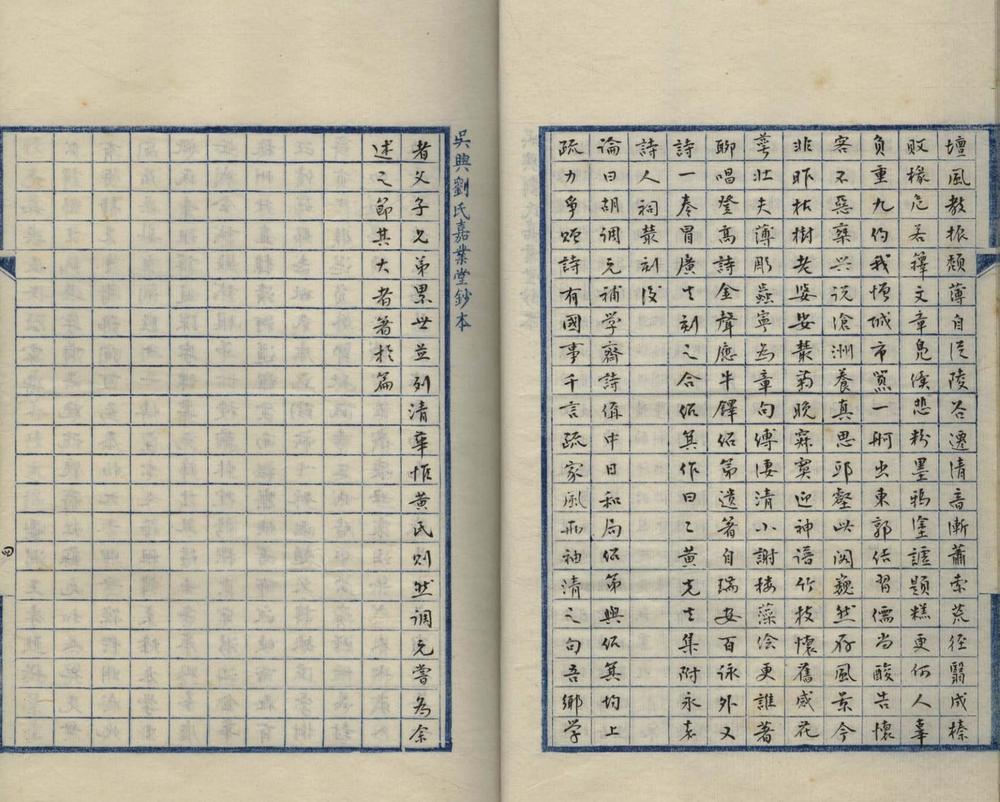 壇風教振頹薄自从陵谷遷清音漸蕭索荒徑翳成榛
敗椽危若籜文章鬼傒悲粉墨鴉塗謔題糕更何人辜
負重九約我憎城市囂一舸出東郭结習儒尚酸告懷
客不惡椉兴説滄洲養真思邱壑此閣巍然存風景今
非昨枯樹老婆娑叢菊晚寂寞迎神語竹枝懷舊感花
萼壯夫薄彫蟲寧為章句縛悽清小謝樓藻繪更誰著
聊唱登高詩金聲應牛鐸紹第遺著自瑞安百詠外又
詩一卷冒廣生刻之合紹箕作曰二黄先生集附永嘉
詩人祠叢刻後
論曰胡調元補学齋詩偁中日和局紹第與紹箕均上
疏力爭贈詩有國事千言疏家風兩袖清之句吾鄉学
吳興劉氏嘉業堂鈔本
者父子兄弟累世並列清華惟黄氏則然調元嘗為余
述之節其大者著於篇
四